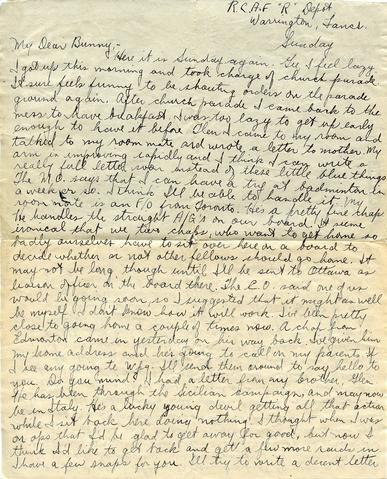 R C A F "R" Depot
Warrington, Lancs.
Sunday
My Dear Bunny,-
Here it is Sunday again. Gee I feel lazy
I got up this morning and took charge of church parade
It sure feels funny to be shouting orders on the parade
ground again. After church parade I came back to the
mess to have breakfast. I was too lazy to get up early
enough to have it before. Then I came to my room and
talked to my room mate and wrote a letter to mother. My
arm is improving rapidly and I think I can write a
really full letter soon instead of these little blue things
The M.O. says that I can have a try at badminton in
a week or so. I think I'll be able to handle it. My
room mate is an F/O from Toronto. He's a pretty fine chap
He handles the straight A/G's on our board. It seems
ironical that we two chaps, who want to get home so
badly ourselves have to sit over here on a board to
decide whether or not other fellows should go home. It
may not be long though until I'll be sent to Ottawa as
liason officer on the board there. The C.O. said one of us
would be going soon, so I suggested that it might as well
be myself. I don't know how it will work. I've been pretty
close to going home a couple of times now. A chap from
Edmonton came in yesterday on his way back. I've given him
my home address and he's going to call on my parents. If
I see any going to Wpg. I'll send them around to say hello to
you. Do you mind? I had a letter from my brother
He has been through the Sicilian campaign, and may now
be in Italy. He's a lucky young devil getting all that action
while I sit back here doing nothing. I thought when I was
on ops that I'd be glad to get away for good, but now I
think I'd like to get back and get a few more raids in
I have a few snaps for you. I'll try to write a decent letter